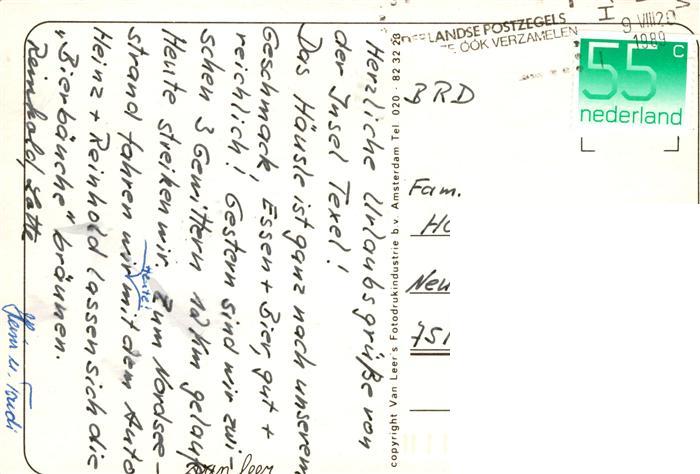 Herzliche Urlaubsgrüße von
der Insel Texel!
Das Häusle ist ganz nach unserem
Geschmack, Essen + Bier, gut +
reichlich! Gestern sind wir zwi-
schen 3 Gewittern 12 km gelauf
Heute streiken wir. Zum Nordsee-
strand fahren wir heute! mit dem Auto
Heinz + Reinhold lassen sich die
"Bierbäuche" bräunen.
Reinhold, Lotte
Heinz u. Trudi
copyright Van Leer's Fotodrukindustrie b.v. Amsterdam Tel. 020 - 82 32 28
van Leer
NEDERLANDSE POSTZEGELS
OÓK VERZAMELEN
9 VIII 20
1989
55 c
nederland
BRD
Fam.
Neu
751